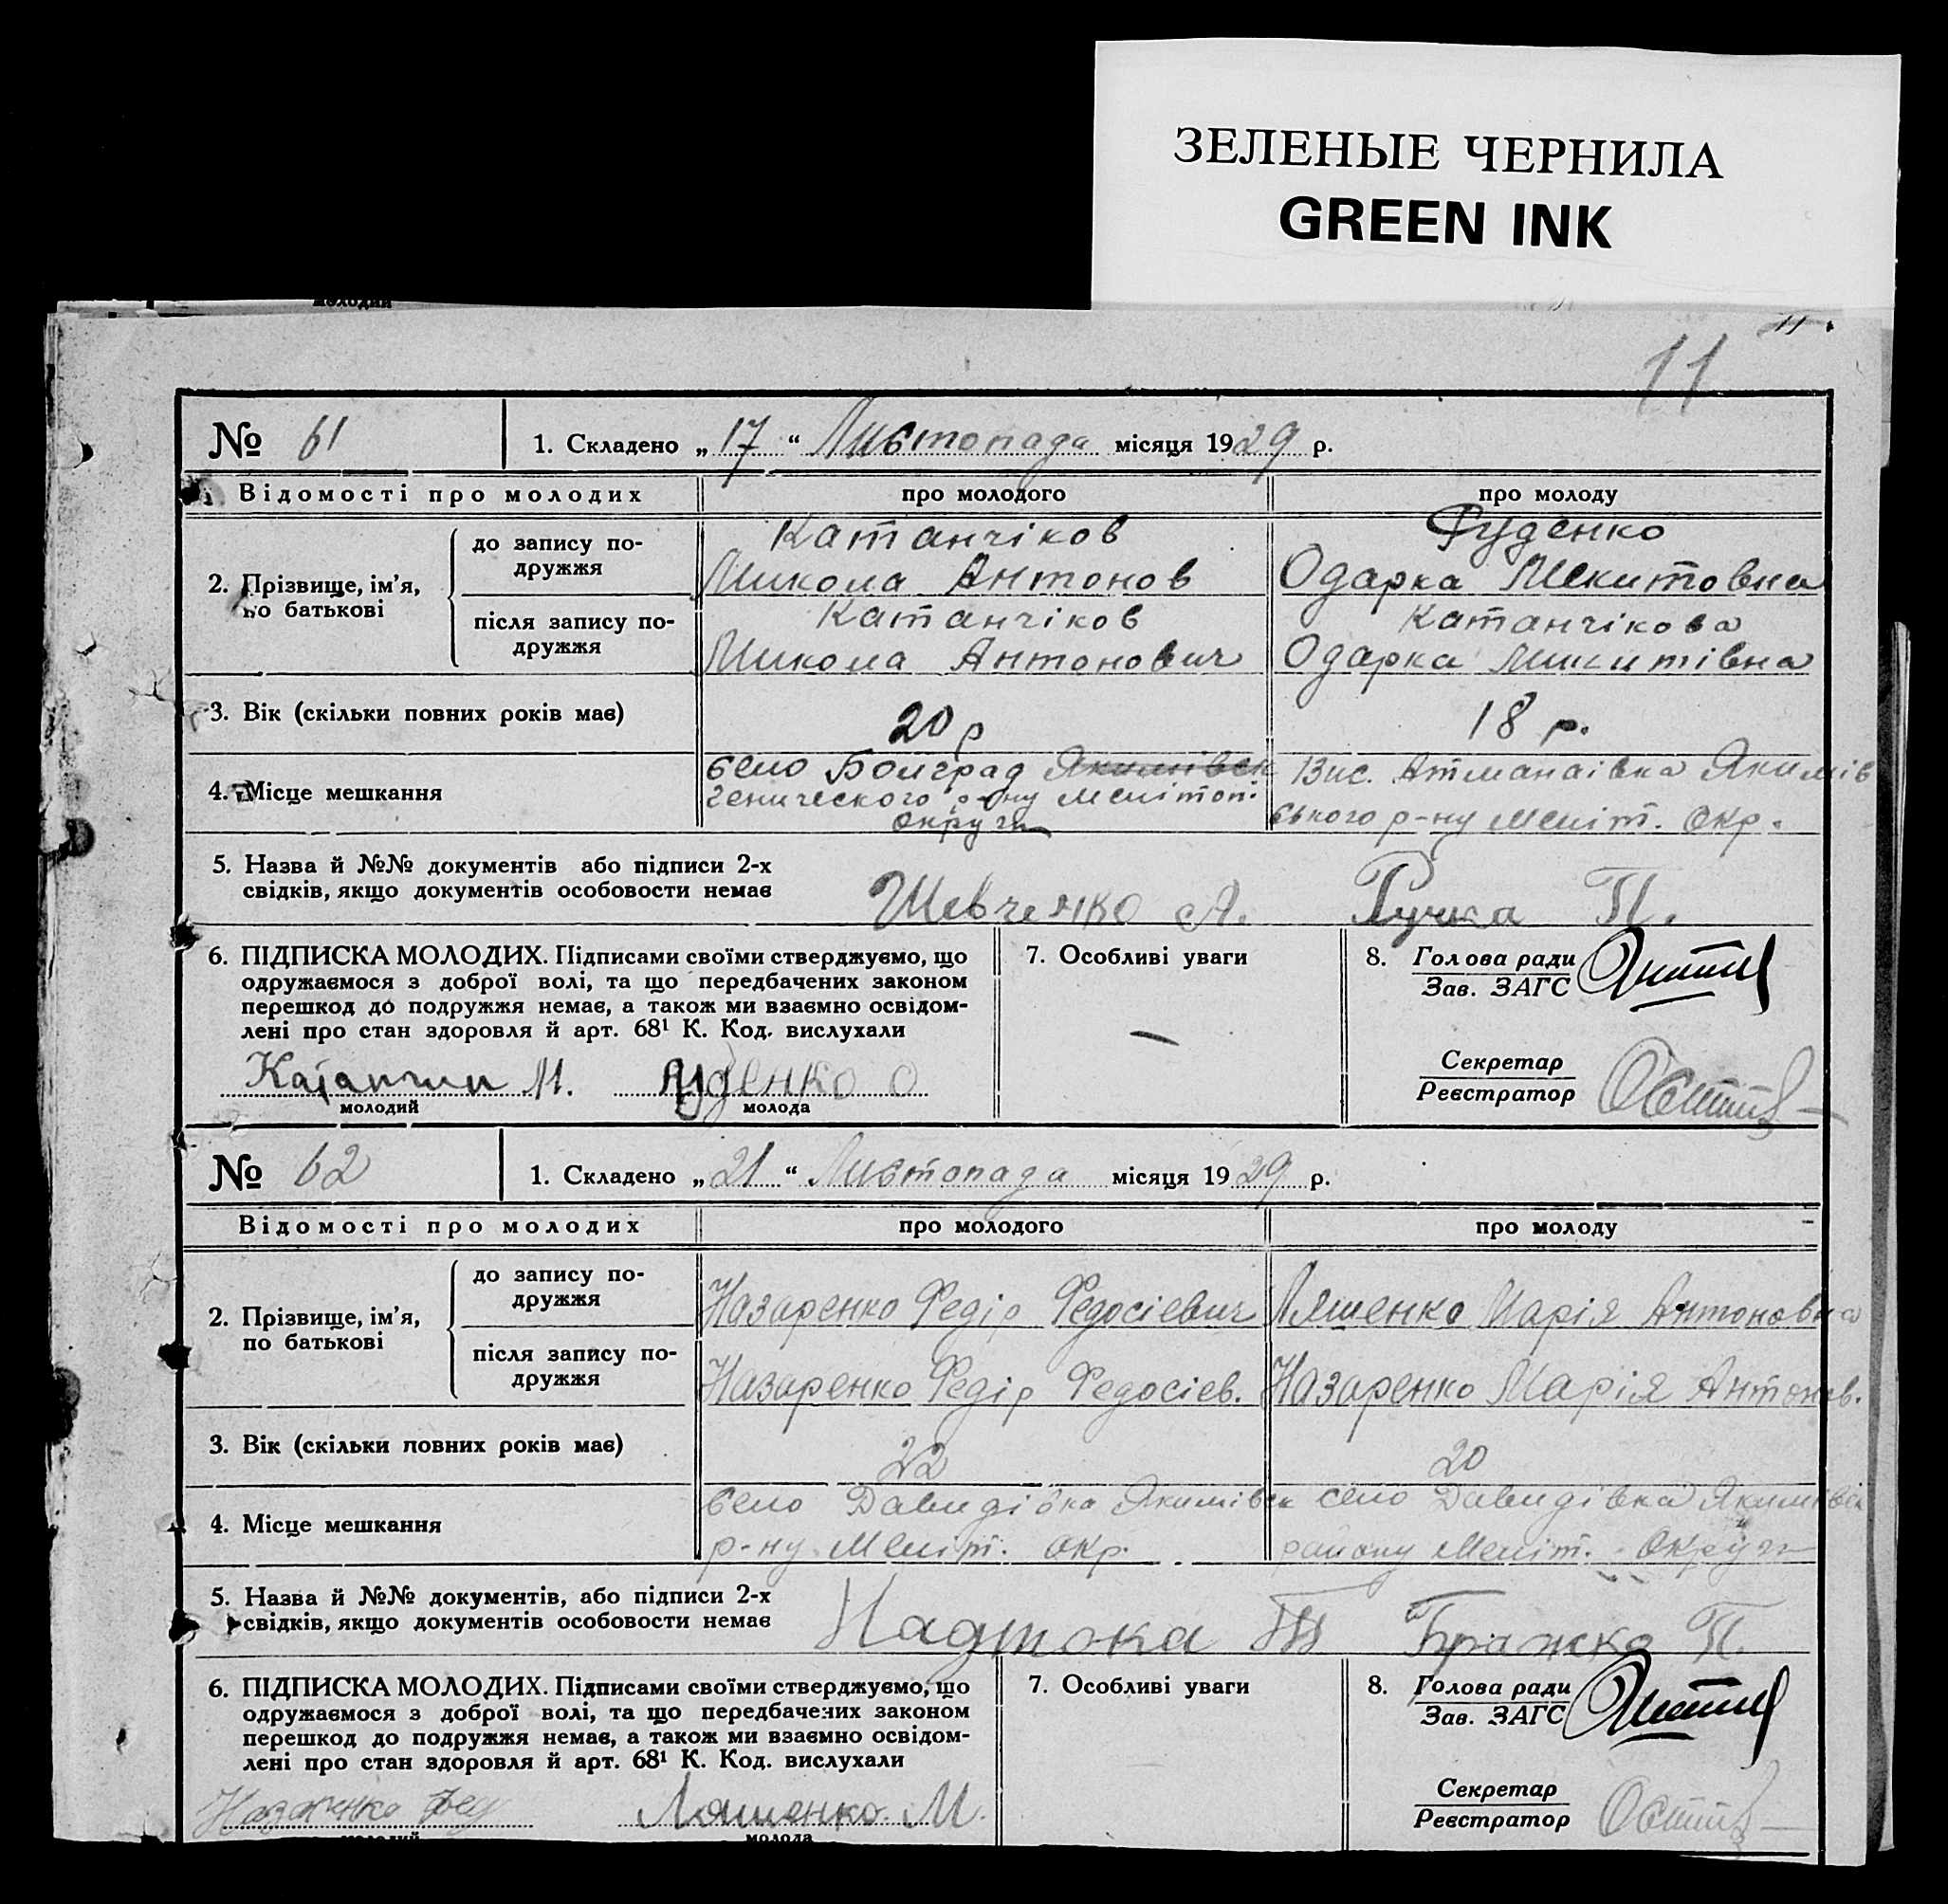 молодий
ЗЕЛЕНЫЕ ЧЕРНИЛА
GREEN INK
11
11
№ 61 1. Складено „17“ Листопада місяця 1929 р.
Відомості про молодих про молодого про молоду
2. Прізвище, ім’я, по батькові
до запису подружжя
Катанчіков Руденко
Микола Антонов Одарка Мекитовна
після запису по-
дружжя
Катанчіков Катанчікова
Микола Антонович Одарка Микитівна
3. Вік (скільки повних років має) 20 р 18 р.
4. Місце мешкання
село Болград Якимівськ Вис. Атманаівка Якимів
генического р-ну Мелітоп. ського р-ну Меліт. Окр.
округи
5. Назва й №№ документів або підписи 2-х
свідків, якщо документів особовости немає
Шевченко А. Ручка П.
6. ПІДПИСКА МОЛОДИХ. Підписами своїми стверджуємо, що
одружаємося з доброї волі, та що передбачених законом
перешкод до подружжя немає, а також ми взаємно освідом-
лені про стан здоровля й арт. 68¹ К. Код. вислухали
М. Руденко О
молодий молода
7. Особливі уваги
—
8. Голова ради
Зав. ЗАГС
Секретар
Реєстратор
№ 62 1. Складено „21“ Листопада місяця 1929 р.
Відомості про молодих про молодого про молоду
2. Прізвище, ім’я,
по батькові
до запису по-
дружжя
Назаренко Федір Федосієвич Ляшенко Марія Антоновна
після запису по-
дружжя
Назаренко Федір Федосієв. Назаренко Марія Антонов.
3. Вік (скільки повних років має) 22 20
4. Місце мешкання
село Давидівка Якимівськ село Давидівка Якимівсь
р-ну Меліт. окр. району Меліт. Округи
5. Назва й №№ документів, або підписи 2-х
свідків, якщо документів особовости немає
Надтока Бражко П.
6. ПІДПИСКА МОЛОДИХ. Підписами своїми стверджуємо, що
одружаємося з доброї волі, та що передбачених законом
перешкод до подружжя немає, а також ми взаємно освідом-
лені про стан здоровля й арт. 68¹ К. Код. вислухали
Назаренко Фед Ляшенко М.
молодий молода
7. Особливі уваги
8. Голова ради
Зав. ЗАГС
Секретар
Реєстратор